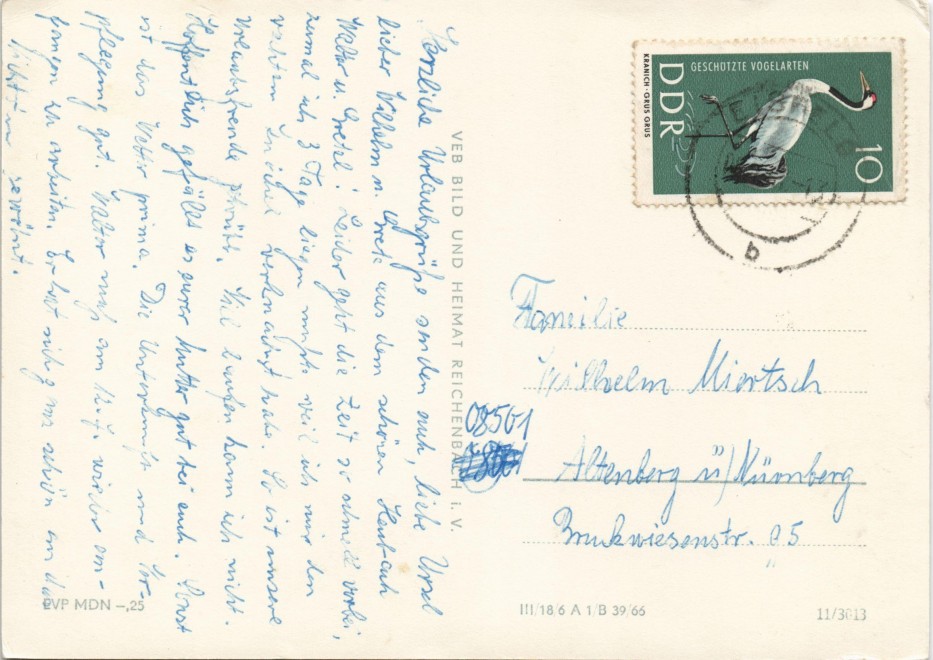 Herzliche Urlaubsgrüße senden euch, liebe Ursel
lieber Wilhelm u. Gret. aus dem schönen
Walter u. Gretel! Leider geht die Zeit so schnell vorbei,
zumal ich 3 Tage liegen mußte weil ich mir den
habe. So ist unsere
Urlaubsfreude getrübt. Viel laufen kann ich nicht.
Hoffentlich gefällt es eurer Mutter gut bei euch. Sonst
ist das Wetter prima. Die Unterkunft und Ver-
pflegung gut. Walter muß am wieder an-
fangen zu arbeiten. Er hat sich schon an das
gewöhnt.
VEB BILD UND HEIMAT REICHENBACH i. V.
EVP MDN –,25
GESCHÜTZTE VOGELARTEN
KRANICH · GRUS GRUS
DDR
10
b
Familie
Wilhelm Miertsch
08501
Altenberg ü/Nürnberg
Bruckwiesenstr. 85
III/18/6 A 1/B 39/66
11/3013